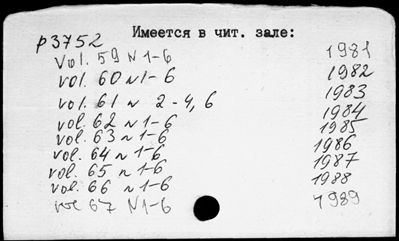 р3752 Имеется в чит. зале:
Vol. 59 N 1-6 1981
vol. 60 N 1-6 1982
vol. 61 N 2-4, 6 1983
vol. 62 N 1-6 1984
vol. 63 N 1-6 1985
vol. 64 N 1-6 1986
vol. 65 N 1-6 1987
vol. 66 N 1-6 1988
vol 67 N 1-6 1989